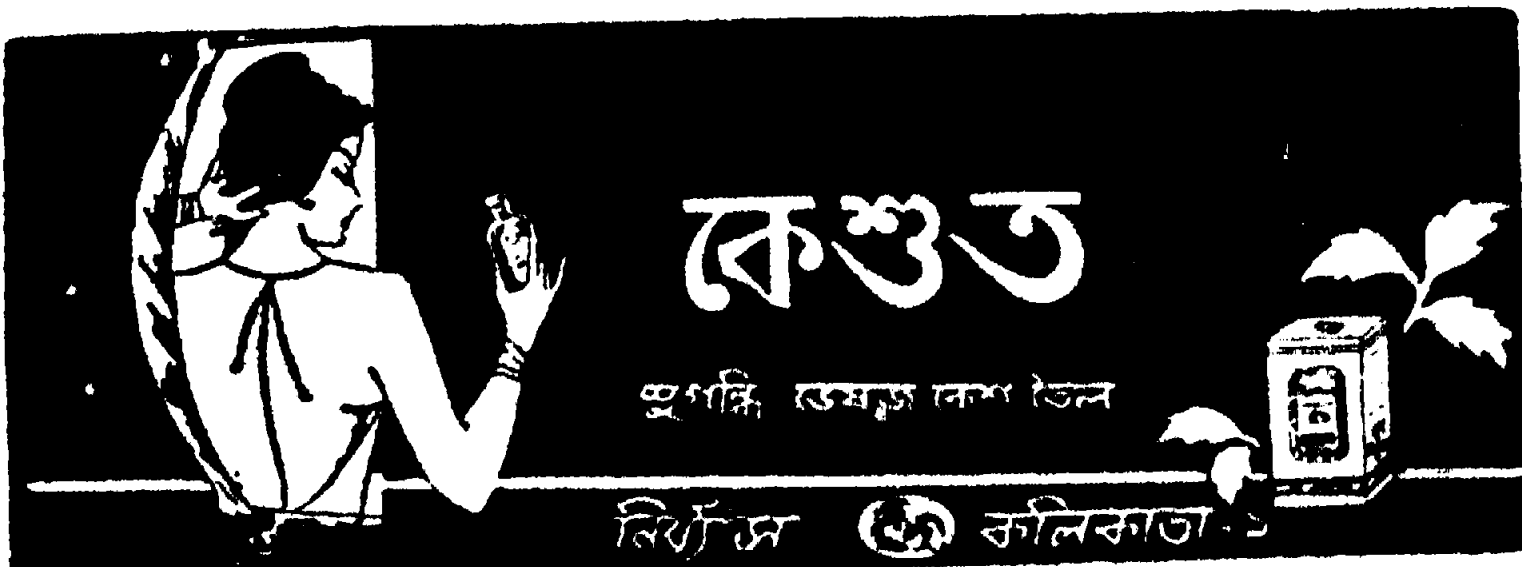 কেশুত
সুগন্ধি ভেষজ কেশ তৈল
নির্য্যাস কলিকাতা